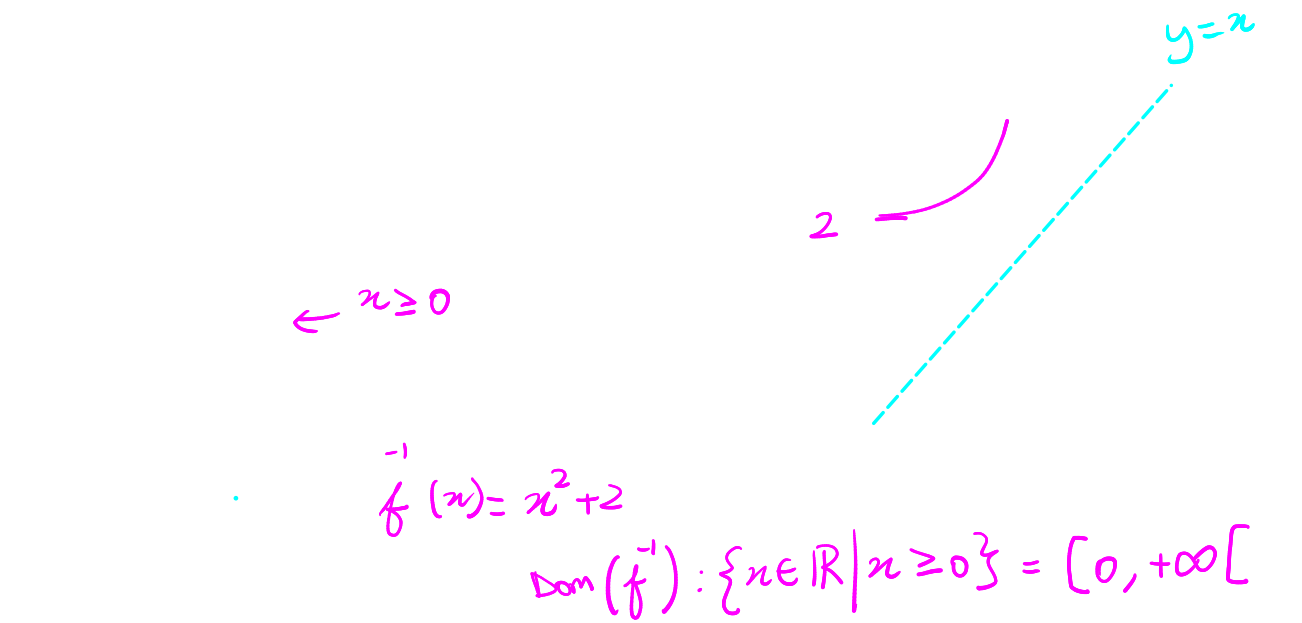 y=x
2
← x≥0
f⁻¹(x)= x²+2
Dom(f⁻¹):{x∈ℝ|x≥0} = [0,+∞[